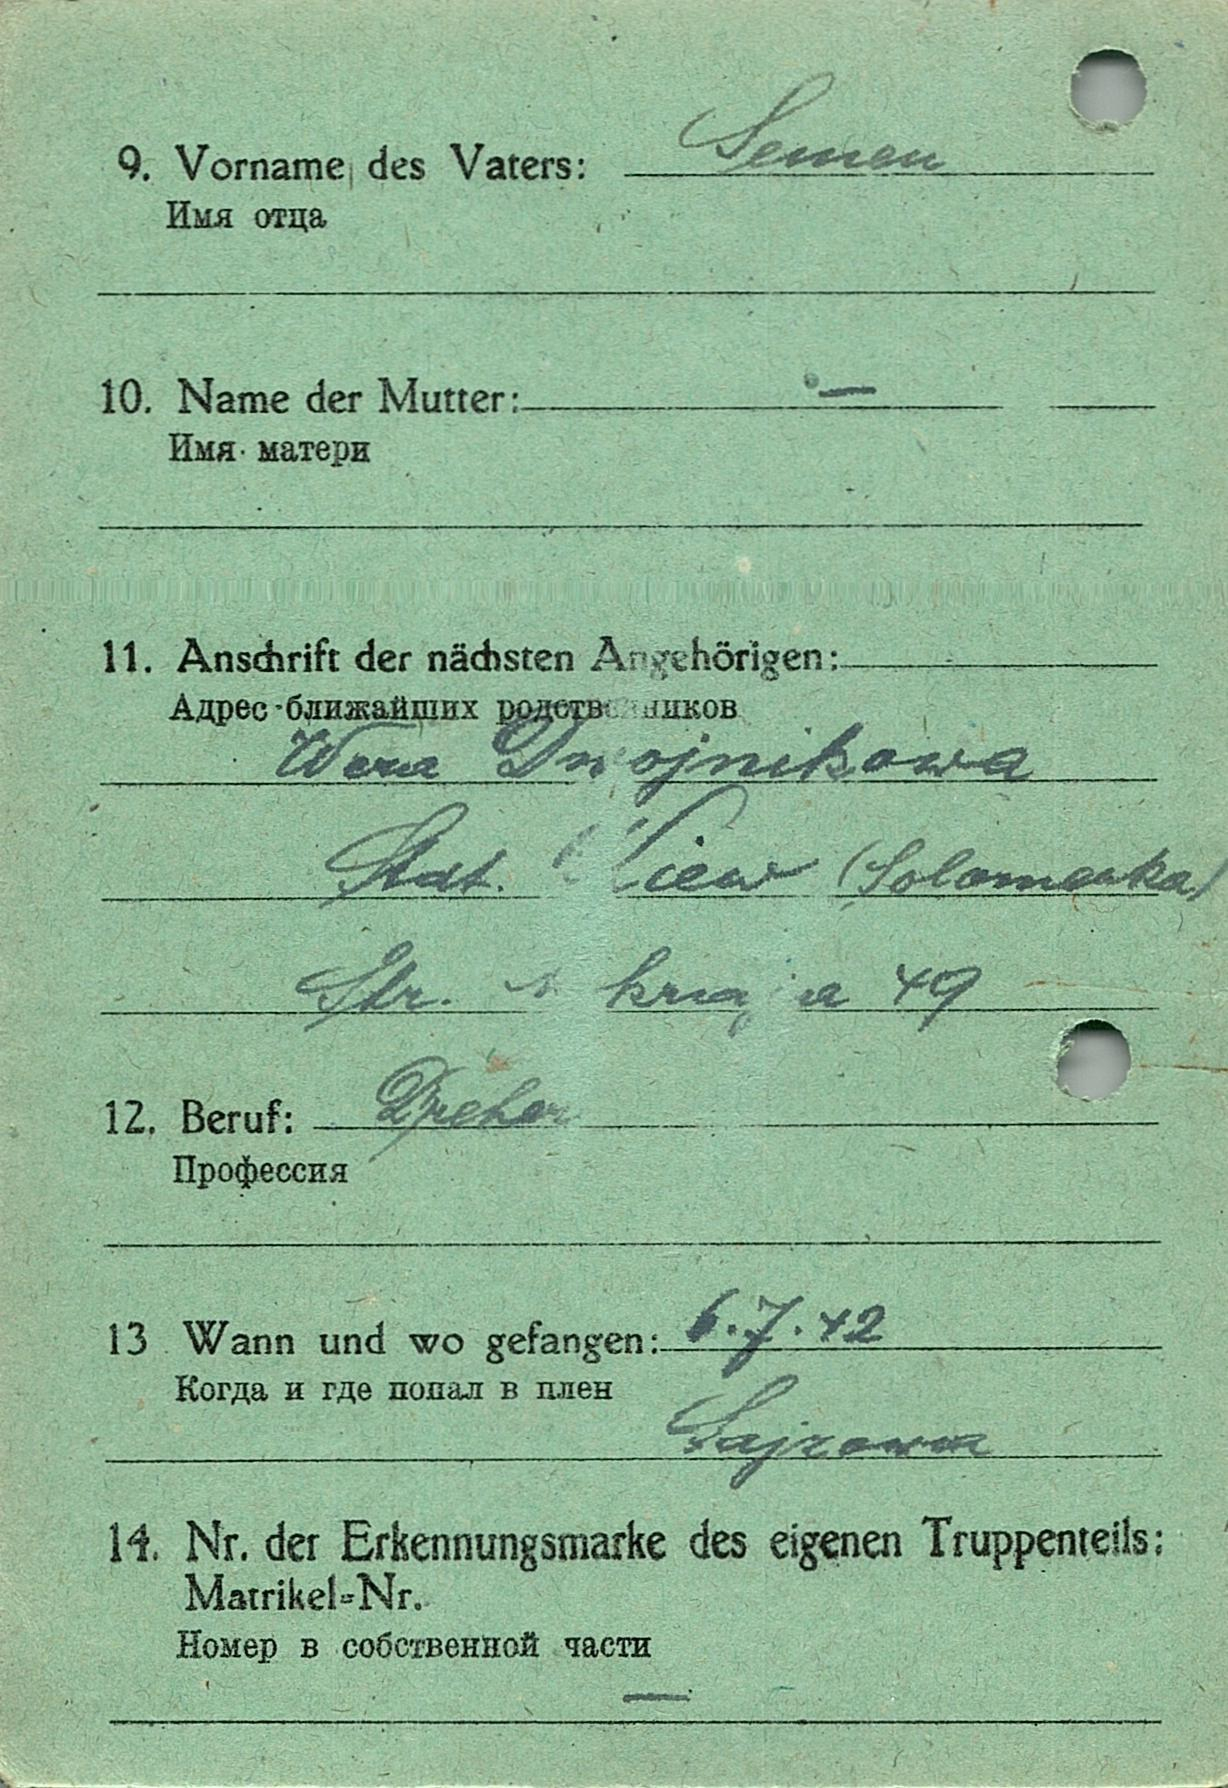 9. Vorname des Vaters: Semen
Имя отца
10. Name der Mutter: —
Имя матери
11. Anschrift der nächsten Angehörigen:
Адрес ближайших родственников
Wera Dwojnikowa
Stdt. Kiew (Solomenka)
Str. 49
12. Beruf: Dreher
Профессия
13 Wann und wo gefangen: 6.7.42
Когда и где попал в плен
14. Nr. der Erkennungsmarke des eigenen Truppenteils:
Matrikel-Nr.
Номер в собственной части
—